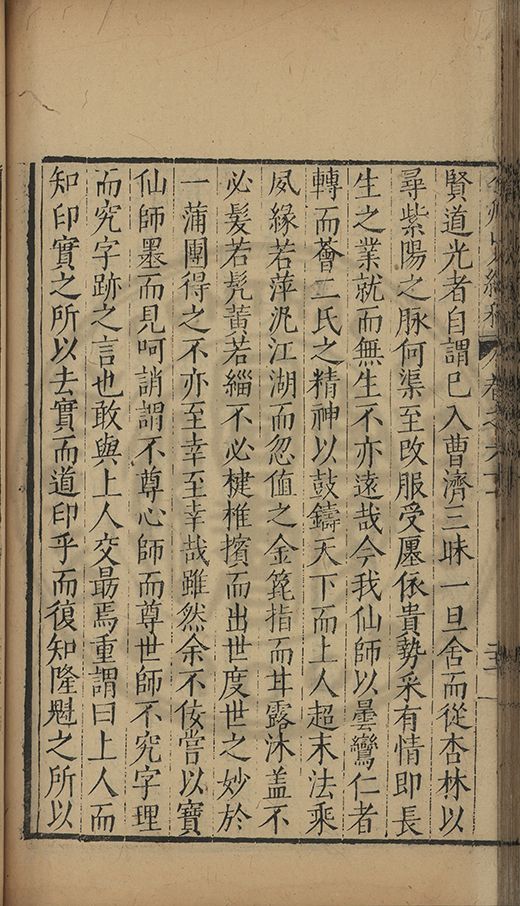 賢道光者自謂巳入曹濟三昧一旦舍而從杏林以
尋紫陽之脉何渠至改服受廛依貴勢采有情即長
生之業就而無生不亦遠哉今我仙師以曇鸞仁者
轉而薈二氏之精神以鼓鑄天下而上人超末法乘
夙緣若萍泥江湖而忽值之金箆指而甘露沐盖不
必髮若髠黃若緇不必犍椎擯而出世度世之妙於
一蒲團得之不亦至幸至幸哉雖然余不佞嘗以寶
仙師墨而見呵誚謂不尊心師而尊世師不究字理
而究字跡之言也敢與上人交最焉重謂曰上人而
知印實之所以去實而道印乎而復知隆魁之所以